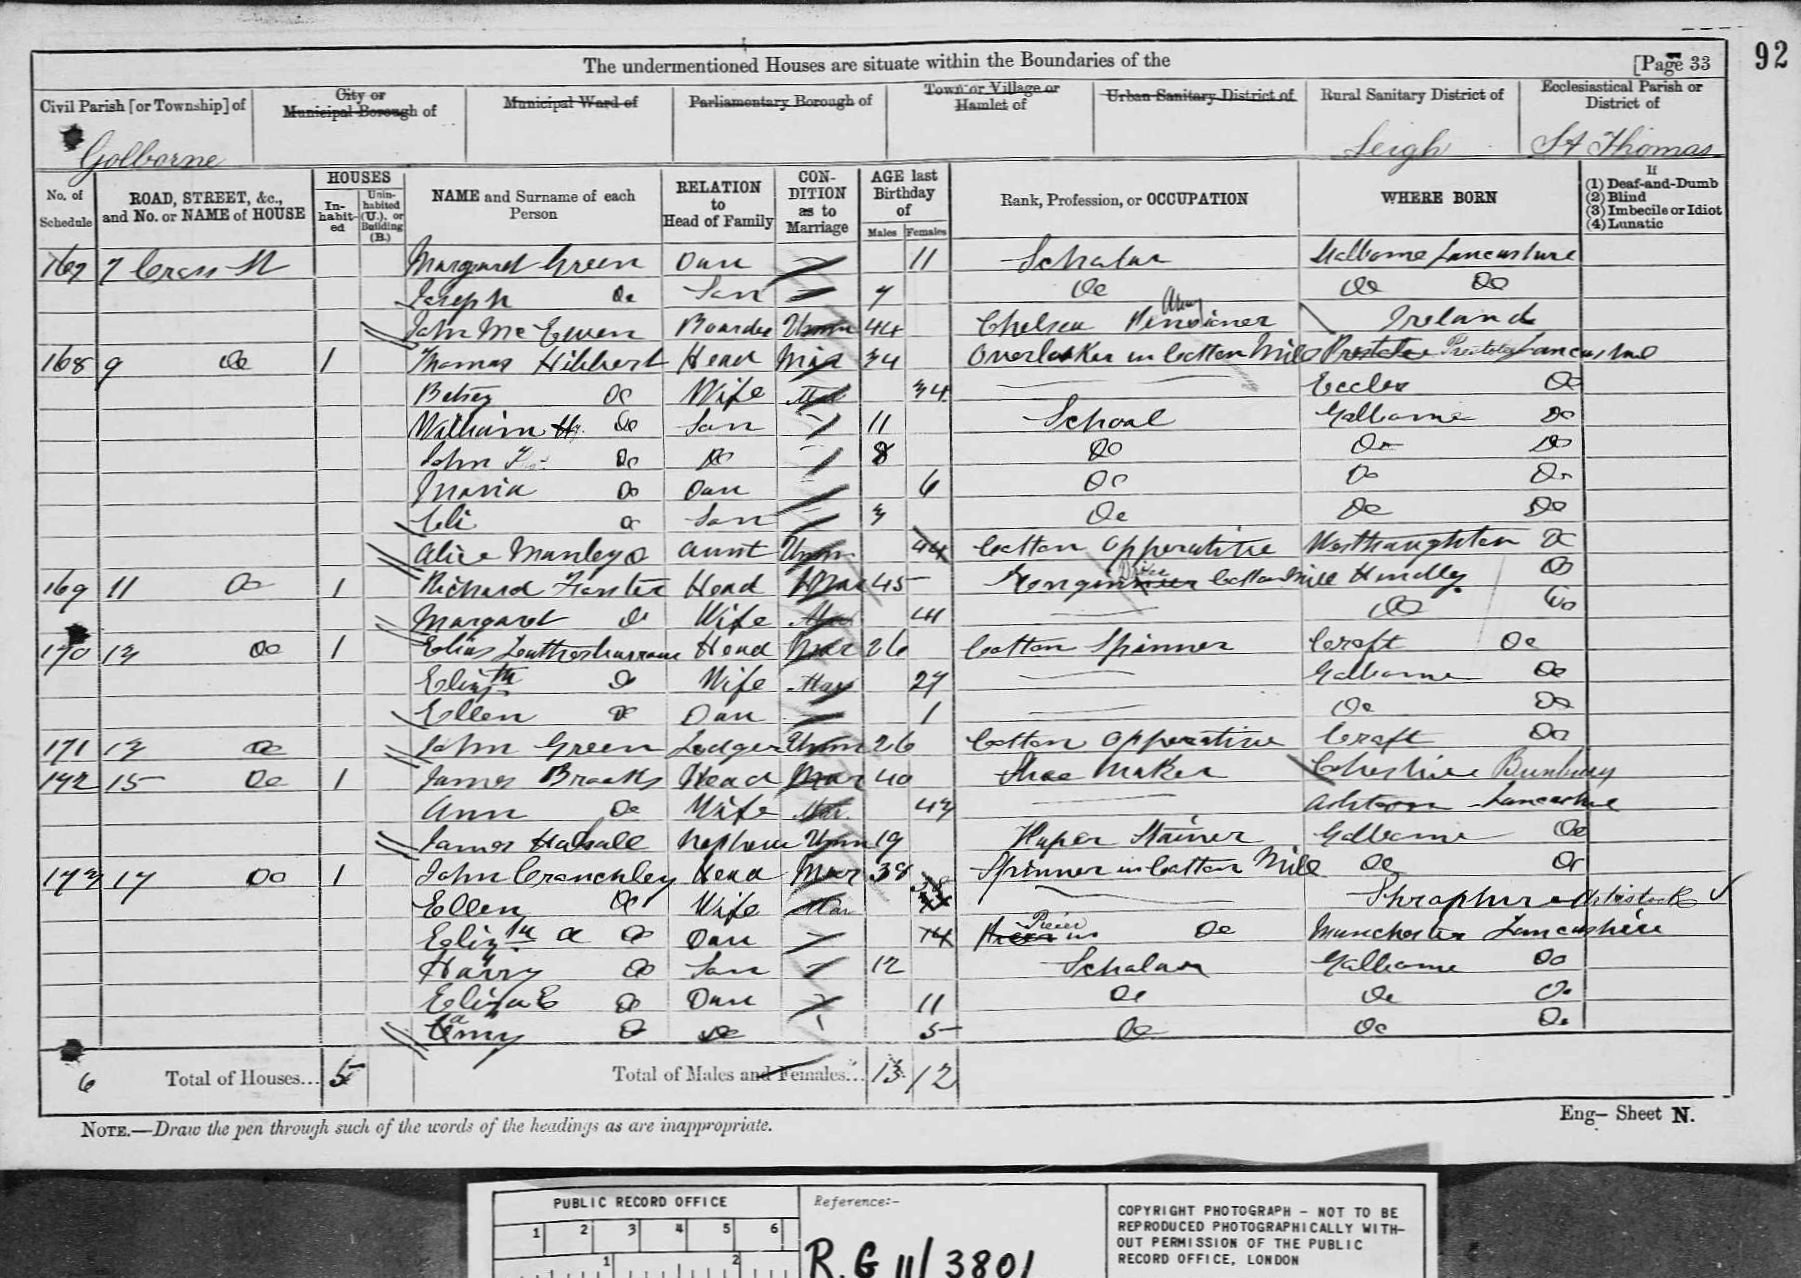 92
The undermentioned Houses are situate within the Boundaries of the [Page 33
Civil Parish [or Township] of City or Municipal Borough of Municipal Ward of Parliamentary Borough of Town or Village or Hamlet of Urban Sanitary District of Rural Sanitary District of Ecclesiastical Parish or District of
Golborne Leigh St Thomas
No. of Schedule ROAD, STREET, &c., and No. or NAME of HOUSE HOUSES Inhabited Uninhabited (U.), or Building (B.) NAME and Surname of each Person RELATION to Head of Family CONDITION as to Marriage AGE last Birthday of Males Females Rank, Profession, or OCCUPATION WHERE BORN If (1) Deaf-and-Dumb (2) Blind (3) Imbecile or Idiot (4) Lunatic
167 7 Cross St Margaret Green Daur 11 Scholar Golborne Lancashire
Joseph Do Son 7 Do Do Do
John McEwen Boarder Unm 44 Chelsea Army Pensioner Ireland
168 9 Do 1 Thomas Hibbert Head Mar 34 Overlooker in Cotton Mill Lancashire
Betsey Do Wife Mar 34 Eccles Do
William H. Do Son 11 School Golborne Do
John Do Do 8 Do Do Do
Maria Do Daur 6 Do Do Do
Eli Do Son 3 Do Do Do
Alice Manley Aunt Unm 44 Cotton Opperative Westhaughton Do
169 11 Do 1 Richard Forster Head Mar 45 Cotton Mill Hindley Do
Margaret Do Wife Mar 41 Do Do
170 13 Do 1 Elias Head Mar 26 Cotton Spinner Croft Do
Elizth Do Wife Mar 27 Golborne Do
Ellen Do Daur 1 Do Do
171 13 Do John Green Lodger Unm 26 Cotton Opperative Croft Do
172 15 Do 1 James Brooks Head Mar 40 Shoe Maker Cheshire Bunbury
Ann Do Wife Mar 43 Ashton Lancashire
James Halsall Nephew Unm 19 Paper Stainer Golborne Do
173 17 Do 1 John Cranchley Head Mar 38 Spinner in Cotton Mill Do Do
Ellen Do Wife Mar 38 Shropshire
Elizth A Do Daur 14 Do Manchester Lancashire
Harry Do Son 12 Scholar Golborne Do
Eliza E Do Daur 11 Do Do Do
Amy Do Do 5 Do Do Do
6 Total of Houses... 5 Total of Males and Females... 13 12
NOTE.—Draw the pen through such of the words of the headings as are inappropriate.
Eng— Sheet N.
PUBLIC RECORD OFFICE
1 2 3 4 5 6
1 2
Reference:-
R.G 11/3801
COPYRIGHT PHOTOGRAPH - NOT TO BE
REPRODUCED PHOTOGRAPHICALLY WITH-
OUT PERMISSION OF THE PUBLIC
RECORD OFFICE, LONDON